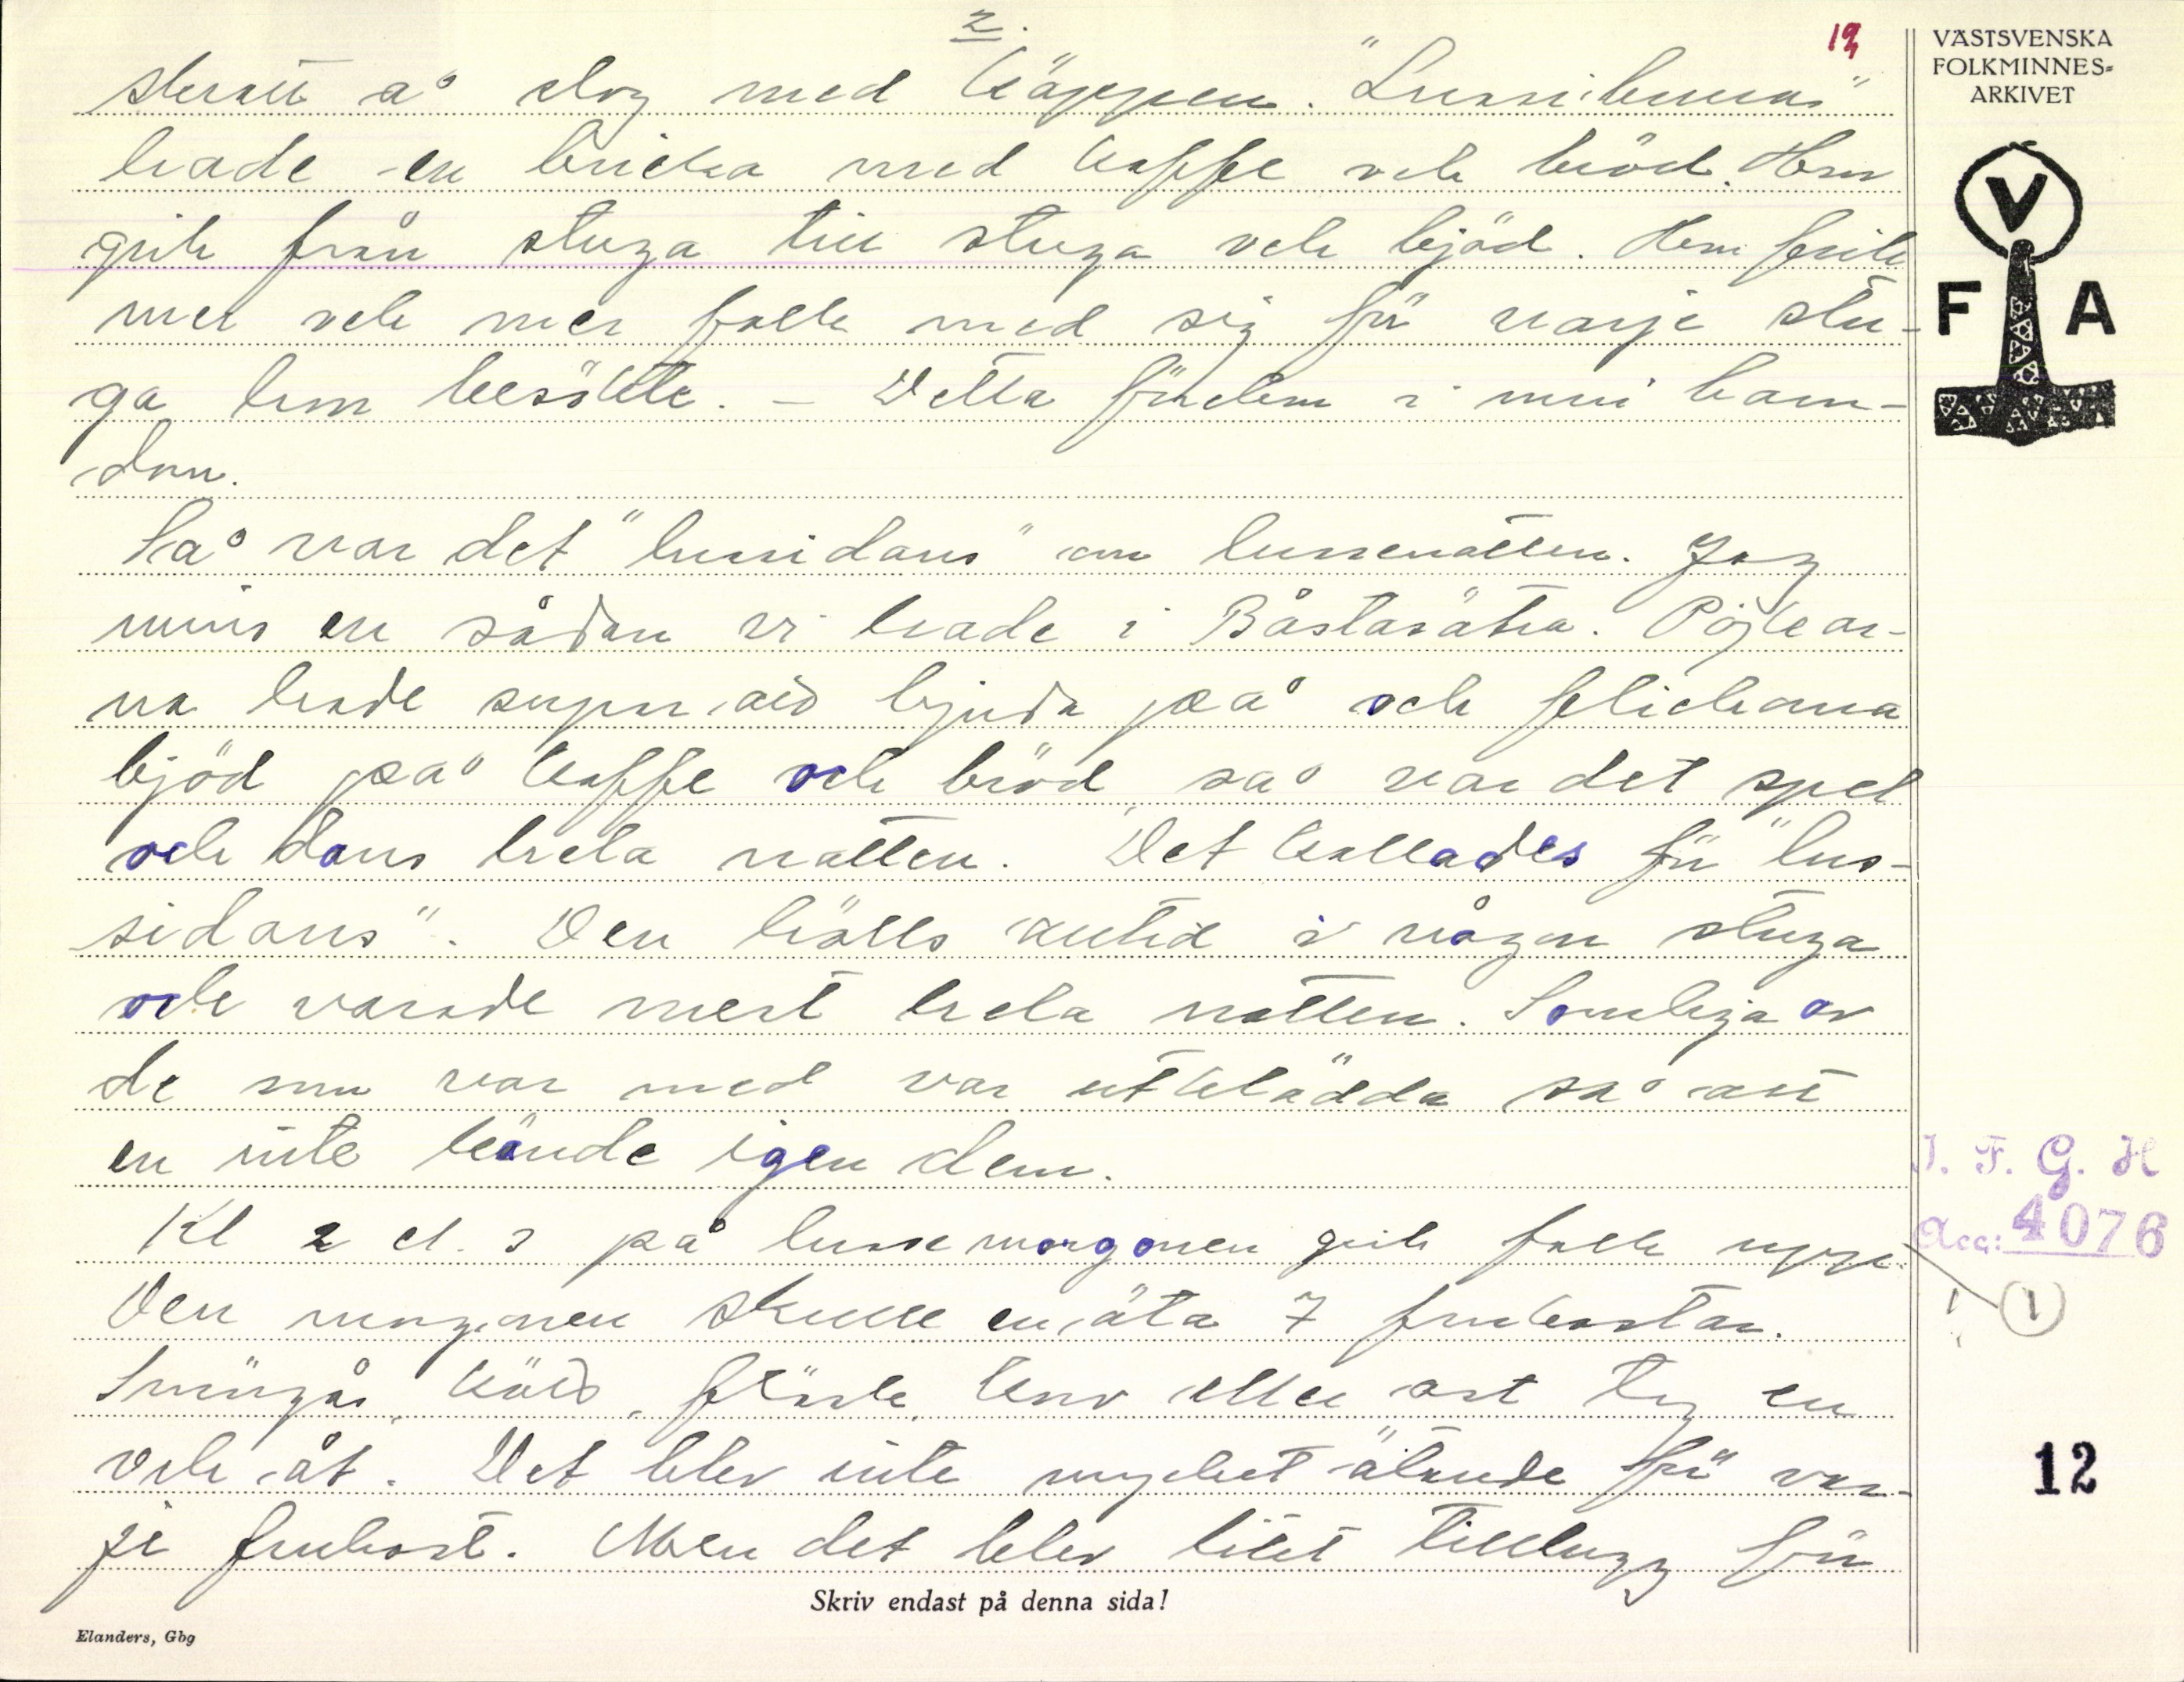 2.
19
VÄSTSVENSKA
FOLKMINNES-
ARKIVET
V
F A
skratt å slog med käppen. "Lussibruns"
hade en bricka med kaffe och bröd. Hon
gick från stuga till stuga och bjöd. Hon fick
mer och mer folk med sig för varje stu-
ga hon besökte. – Detta fördom i min barn-
dom.
Så var det "lussidans" om lussenatten. Jag
minns en sådan vi hade i Båstasätra. Pöjkar-
na hade supar att bjuda på och flickorna
bjöd på kaffe och bröd, så var det spel
och dans hela natten. Det kallades för "lus-
sidans". Den hölls alltid i någon stuga
och varade mest hela natten. Somliga av
de som var med var utklädda så att
en inte kände igen dem.
Kl 2 el. 3 på lussemorgonen gick folk upp.
Den morgonen skulle en äta 7 frukostar.
Smörgås, kött, fläsk, korv eller ost tog en
och åt. Det blev inte mycket ätande för var-
je frukost. Men det blev litet tillugg för
I. F. G. H
Acc: 4076
1
12
Skriv endast på denna sida!
Elanders, Gbg